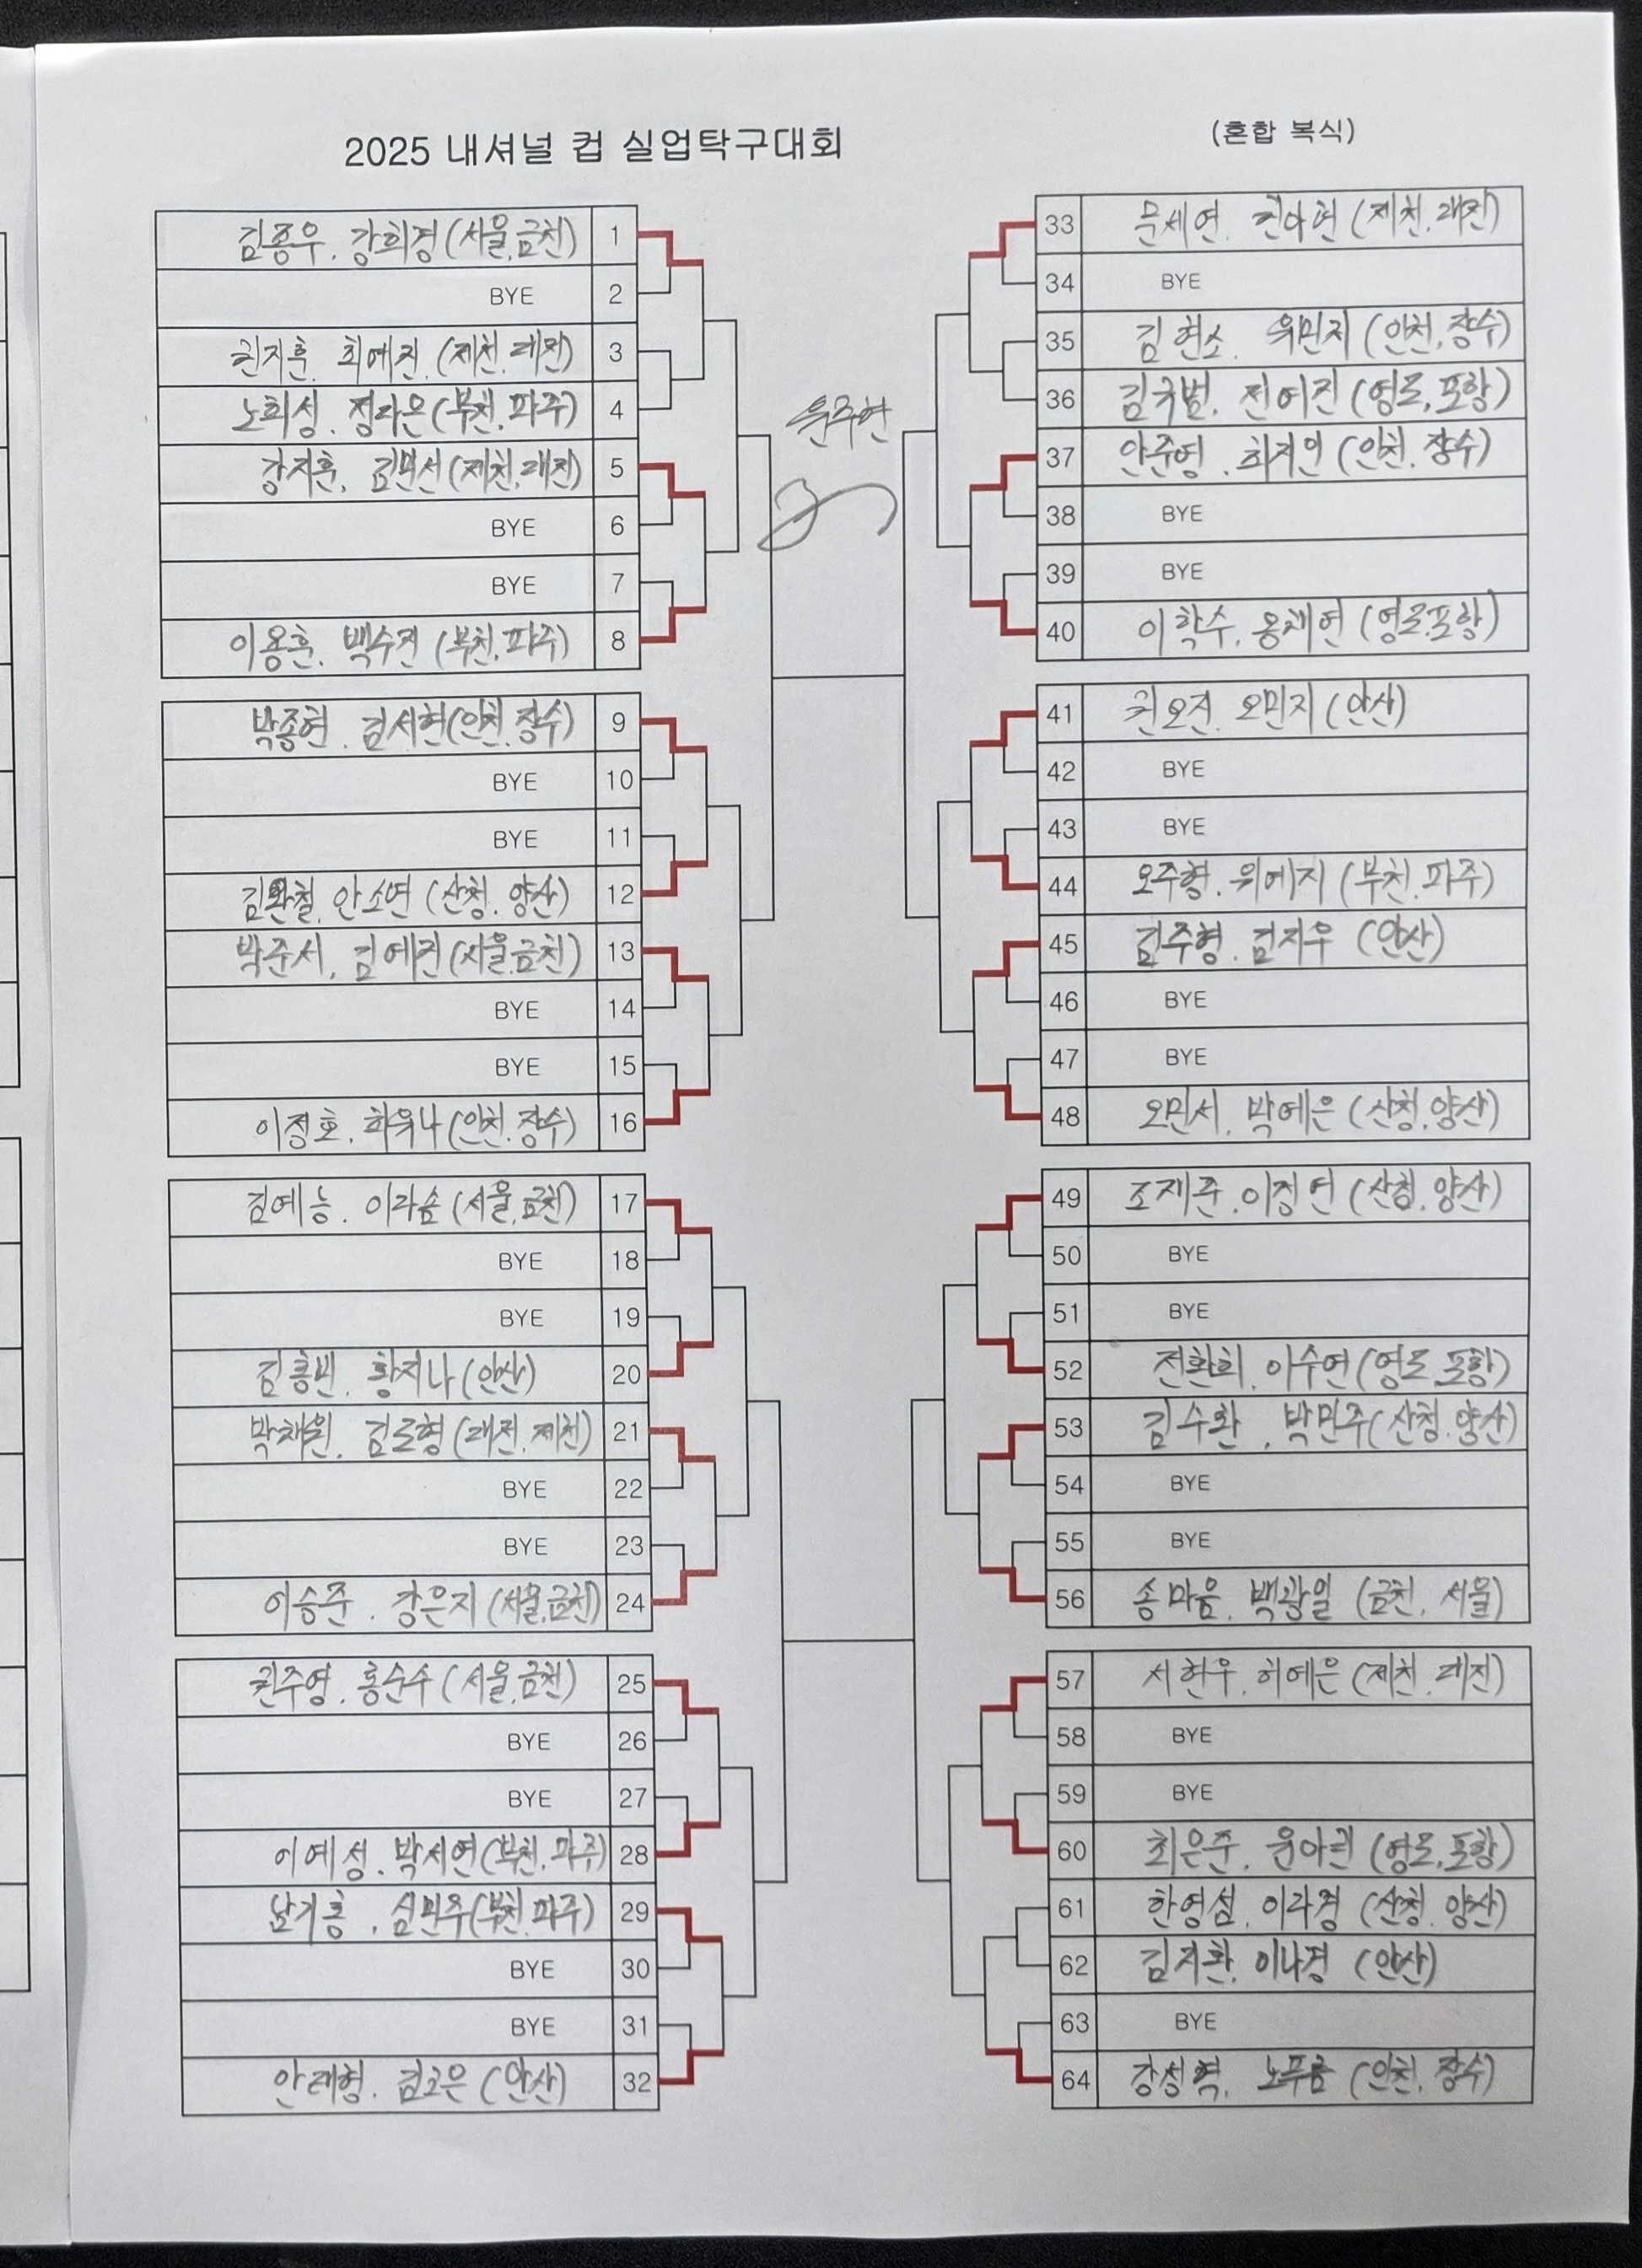 2025 내셔널 컵 실업탁구대회
(혼합 복식)
김종우. 강희경 (서울.금천) 1
BYE 2
권지훈. 최예진. (제천. 대전) 3
노희성. 정다은 (부천. 파주) 4
강지훈. 김민선 (제천.대전) 5
BYE 6
BYE 7
이용훈. 백수진 (부천.파주) 8
박종현. 김서현 (인천.장수) 9
BYE 10
BYE 11
김완철. 안소연 (산청. 양산) 12
박준서. 김예진 (서울.금천) 13
BYE 14
BYE 15
이정호. 최유나 (인천.장수) 16
김예능. 이다솜 (서울.금천) 17
BYE 18
BYE 19
김홍빈. 황지나 (안산) 20
박채원. 김도형 (대전. 제천) 21
BYE 22
BYE 23
이승준. 강은지 (서울.금천) 24
권주영. 홍순수 (서울.금천) 25
BYE 26
BYE 27
이예성. 박서연 (부천.파주) 28
남기홍. 심민주 (부천.파주) 29
BYE 30
BYE 31
안태형. 김고은 (안산) 32
윤주현
33 문세연. 권아현 (제천.대전)
34 BYE
35 김현소. 위민지 (인천.장수)
36 김국범. 전여진 (영도.포항)
37 안준영. 최지인 (인천.장수)
38 BYE
39 BYE
40 이학수. 옹채연 (영도.포항)
41 권오진. 오민지 (안산)
42 BYE
43 BYE
44 오주형. 위예지 (부천.파주)
45 김주형. 김지우 (안산)
46 BYE
47 BYE
48 오민서. 박예은 (산청.양산)
49 조재준. 이정연 (산청.양산)
50 BYE
51 BYE
52 전환희. 이수연 (영도.포항)
53 김수환. 박민주 (산청.양산)
54 BYE
55 BYE
56 송마음. 백광일 (금천. 서울)
57 서현우. 허예은 (제천.대전)
58 BYE
59 BYE
60 최은준. 윤아린 (영도.포항)
61 한영섬. 이다경 (산청.양산)
62 김지환. 이나경 (안산)
63 BYE
64 강성혁. 노푸름 (인천.장수)